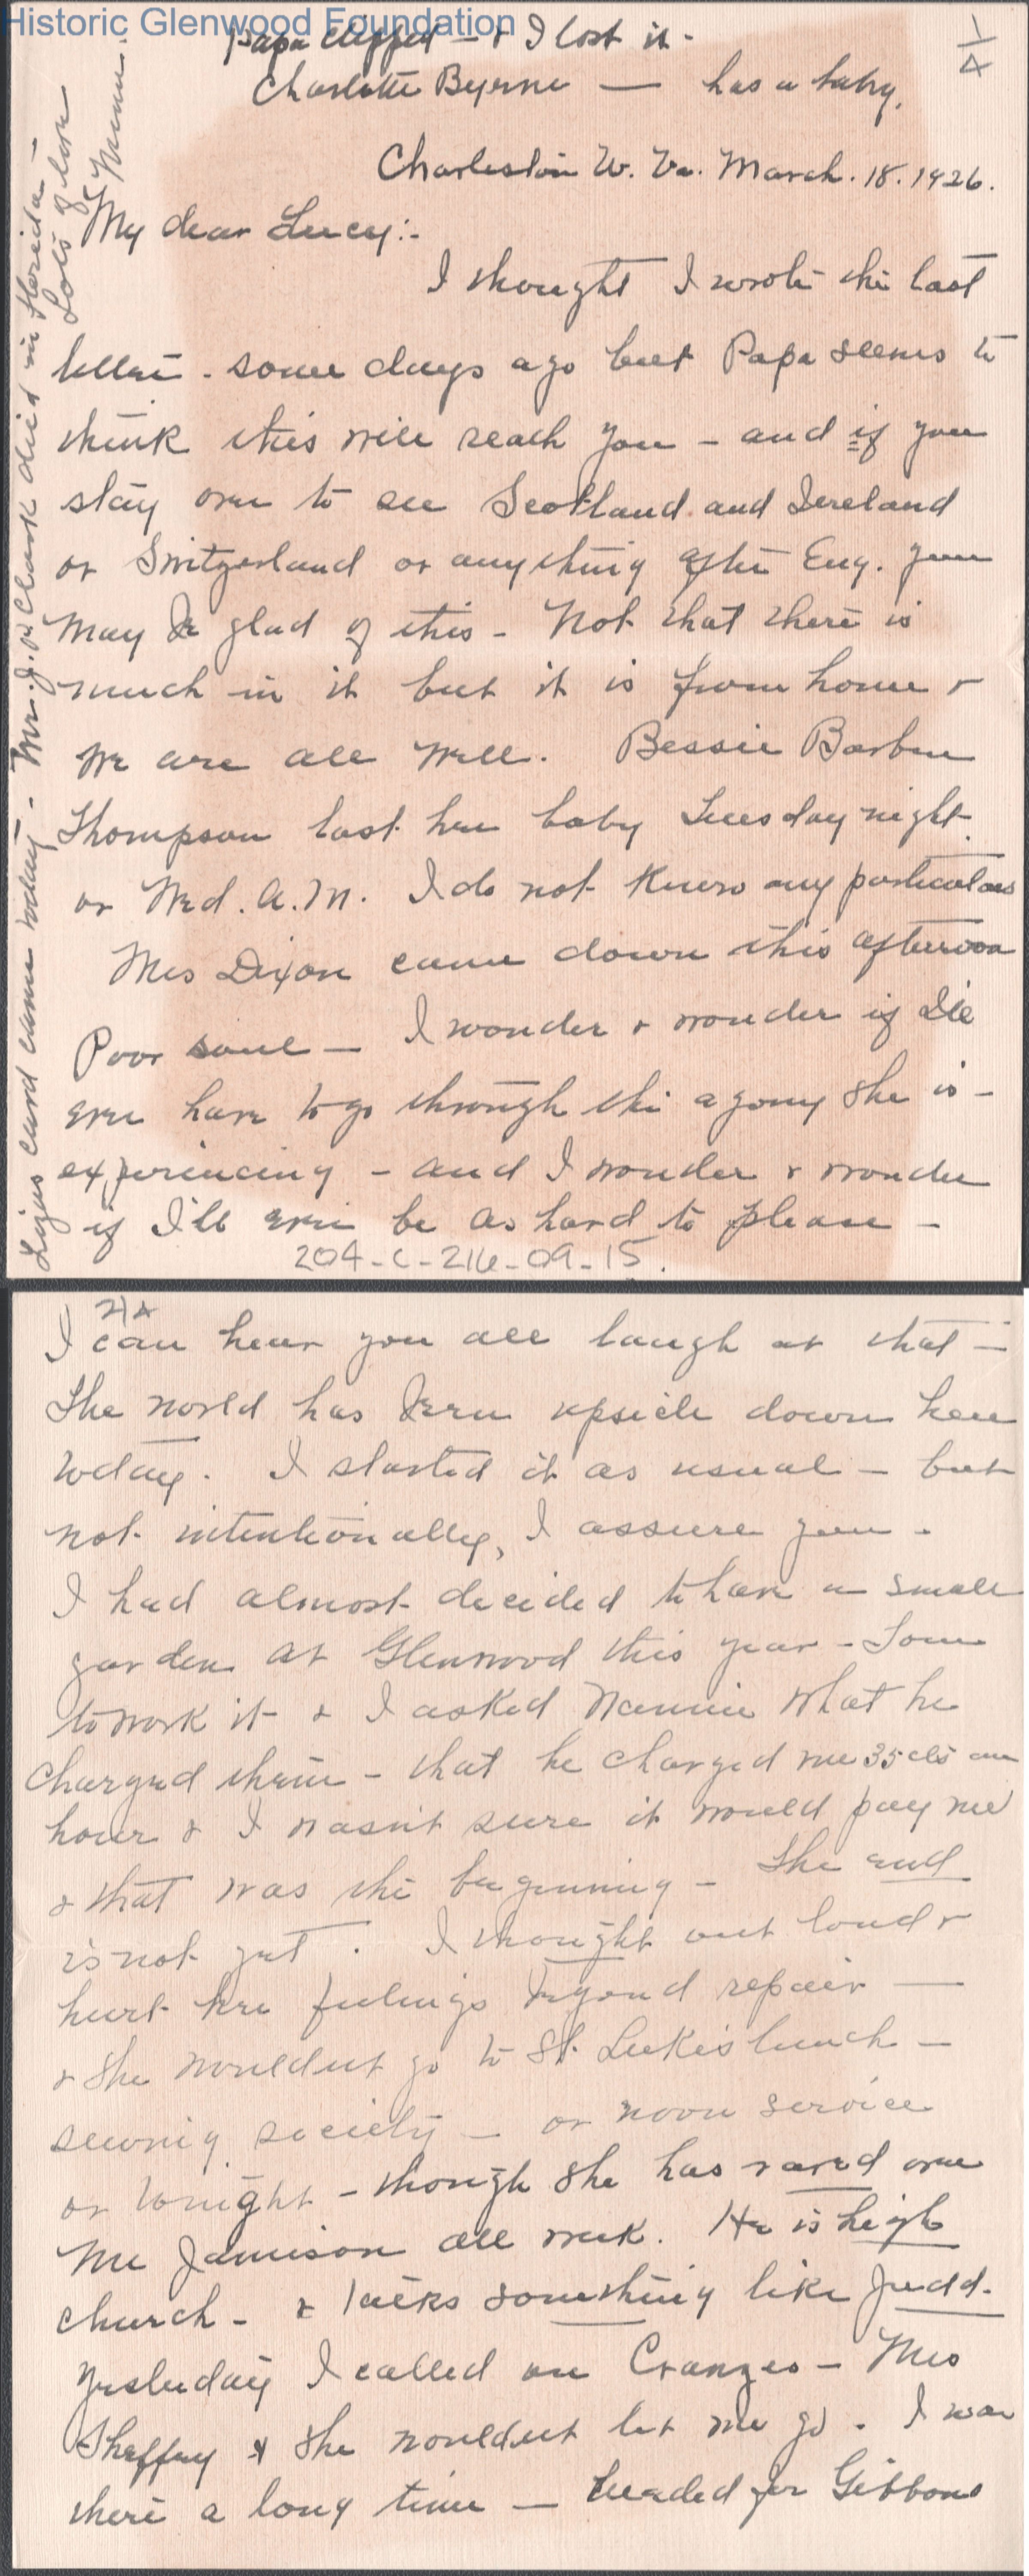 Historic Glenwood Foundation
1/4
Papa clipped - & I lost it -
Charlotte Byrne — has a baby.
Charleston W. Va. March. 18. 1926.
My dear Lucy:-
I thought I wrote the last
letter - some days ago but Papa seems to
think this will reach you - and if you
stay over to see Scotland and Ireland
or Switzerland or anything after Eng. you
may be glad of this - Not that there is
much in it but it is from home &
we are all well. Bessie Barber
Thompson lost her baby Tuesday night
or Wed. A.M. I do not know any particulars
Mrs Dixon came down this afternoon
Poor soul - I wonder & wonder if I'll
ever have to go through the agony she is -
experiencing - and I wonder & wonder
if I'll ever be as hard to please -
204-C-216-09-15.
Lizas card came today - Mr. J. Clark died in Florida -
Lots of love
2/4
I can hear you all laugh at that -
The world has been upside down here
today. I started it as usual - but
not intentionally, I assure you.
I had almost decided to have a small
garden at Glenwood this year - Tom
to work it & I asked Nannie what he
charged them - that he charged me 35 cts an
hour & I wasn't sure it would pay me
& that was the beginning - The end
is not yet. I thought out loud &
hurt her feelings beyond repair —
& she wouldnt go to St. Luke's lunch -
sewing society - or noon service
or tonight - though she has raved over
Mr Jamison all week. He is high
church - & looks something like Judd.
Yesterday I called on Cranzes - Mrs
Sheffey & she wouldnt let me go. I was
there a long time — headed for Gibbons